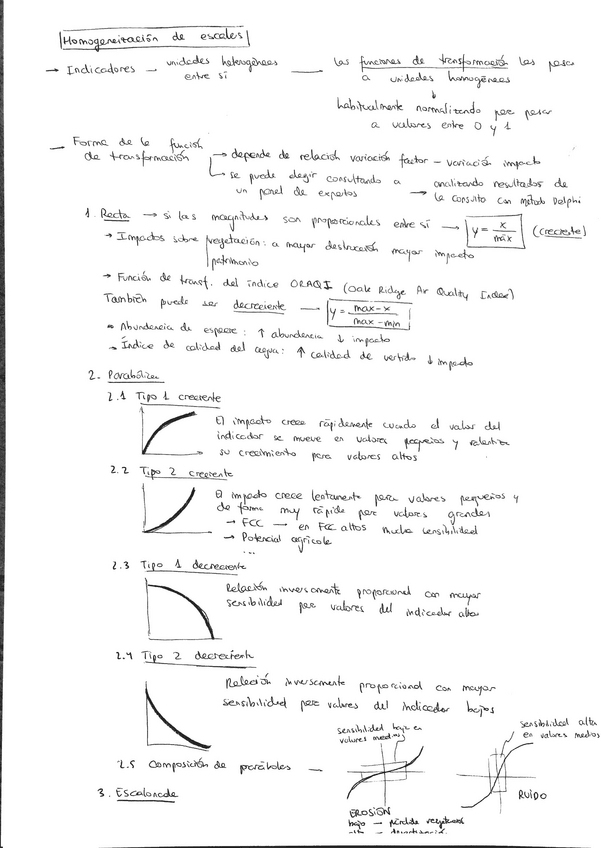 Homogeneización de escalas
→ Indicadores → unidades heterogéneas entre sí — las funciones de transformación las pasa a unidades homogéneas
↓
habitualmente normalizando para pasar a valores entre 0 y 1
— Forma de la función de transformación
→ depende de relación variación factor - variación impacto
→ se puede elegir consultando a un panel de expertos → analizando resultados de la consulta con método Delphi
1. Recta → si las magnitudes son proporcionales entre sí → y = x / máx (creciente)
→ Impactos sobre vegetación: a mayor destrucción mayor impacto
patrimonio
→ Función de transf. del índice ORAQI (Oak Ridge Air Quality Index)
También puede ser decreciente → y = max-x / max-min
→ Abundancia de especie: ↑ abundancia ↓ impacto
→ Índice de calidad del agua: ↑ calidad de vertido ↓ impacto
2. Parabólica
2.1 Tipo 1 creciente
El impacto crece rápidamente cuando el valor del
indicador se mueve en valores pequeños y relentiza
su crecimiento para valores altos
2.2 Tipo 2 creciente
El impacto crece lentamente para valores pequeños y
de forma muy rápida para valores grandes
→ FCC → en FCC altos mucha sensibilidad
→ Potencial agrícola
...
2.3 Tipo 1 decreciente
Relación inversamente proporcional con mayor
sensibilidad para valores del indicador altos
2.4 Tipo 2 decreciente
Relación inversamente proporcional con mayor
sensibilidad para valores del indicador bajos
2.5 Composición de parábolas —
sensibilidad baja en
valores medios
EROSIÓN
bajo → pérdida vegetación
sensibilidad alta
en valores medios
RUIDO
3. Escalonada